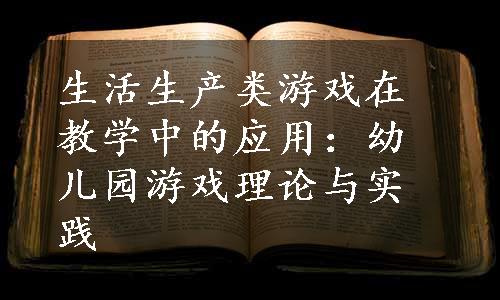 生活生产类游戏在
教学中的应用：幼
儿园游戏理论与实
践